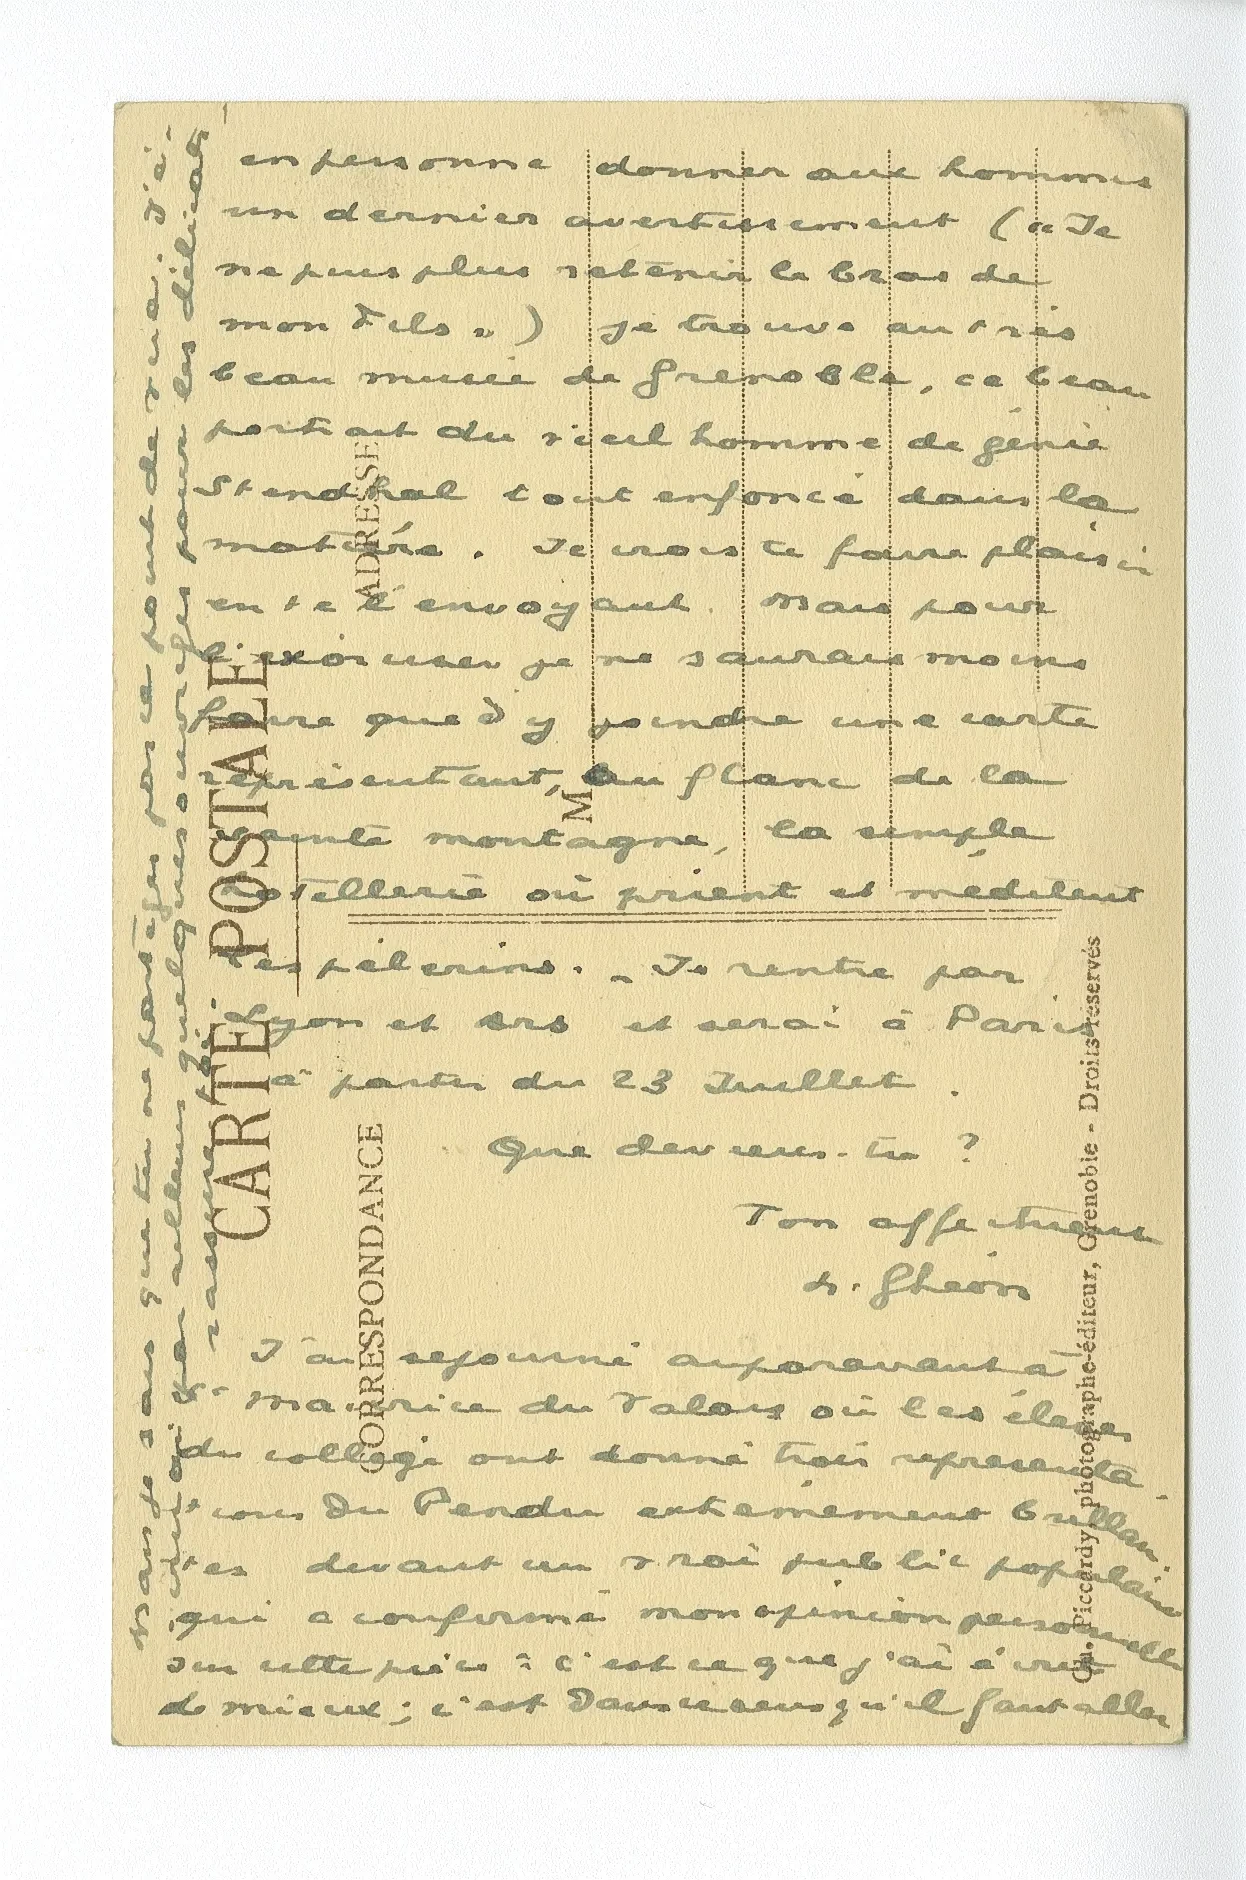 en personne donner aux hommes
un dernier avertissement (« Je
ne puis plus retenir le bras de
mon Fils ») je trouve au très
beau musée de Grenoble, ce beau
portrait du vieil homme de génie
Stendhal tout enfoncé dans la
matière. Je crois te faire plaisir
en te l'envoyant. Mais pour
l'exorciser je ne saurais moins
faire que d'y joindre une carte
représentant, au flanc de la
sainte montagne, la simple
hotellerie où prient et méditent
les pèlerins. – Je rentre par
Lyon et Ars et serai à Paris
à partir du 23 Juillet.
Que deviens-tu ?
Ton affectueux
h. Ghéon
J'ai séjourné auparavant à
St Maurice du Valais où les élèves
du collège ont donné trois représenta-
tions du Pendu extrêmement brillan-
tes devant un vrai public populaire
qui a confirmé mon opinion personnelle
sur cette pièce : c'est ce que j'ai écrit
de mieux ; c'est dans ce sens qu'il faut aller
Mais je sais que tu ne partages pas ce point de vue. J'é-
crirai par ailleurs quelques ouvrages pour les délicats
rassure-toi.
CARTE POSTALE
CORRESPONDANCE
ADRESSE
M
Ch. Piccardy, photographe-éditeur, Grenoble - Droits réservés